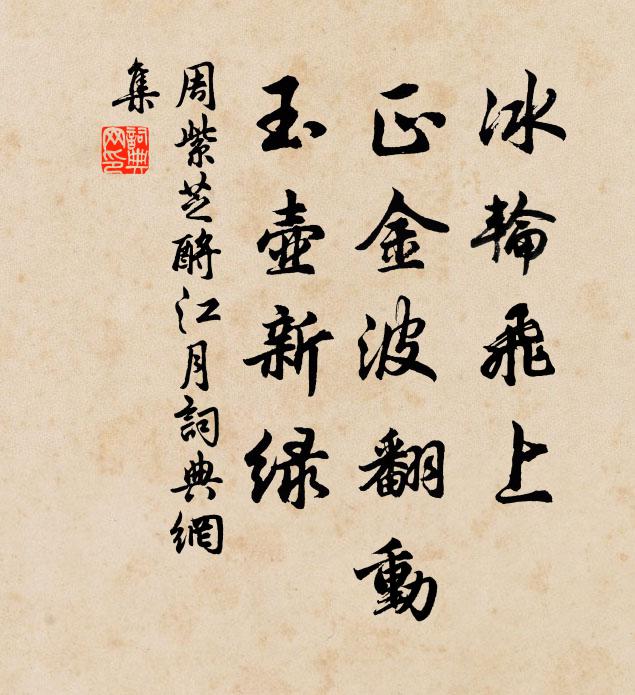 冰輪飛上
正金波翻動
玉壺新緑
周紫芝酹江月詞典網
集
詞典
网印